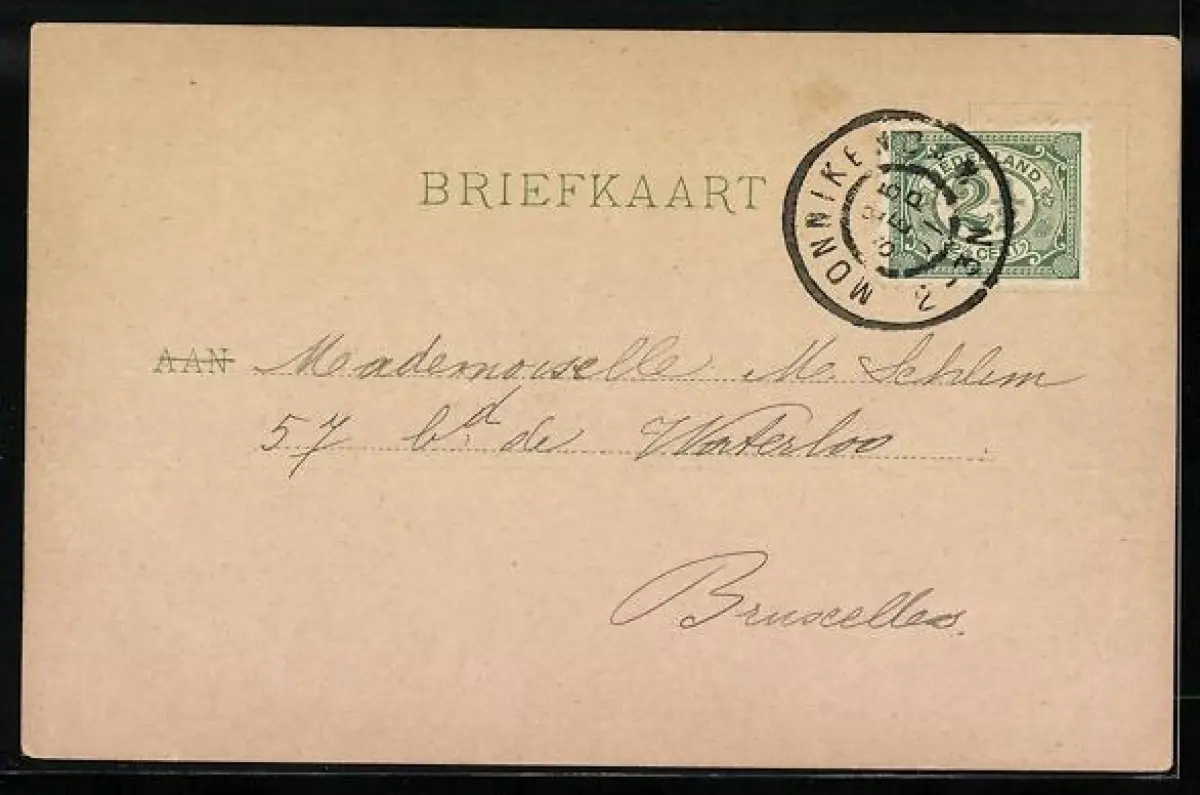 BRIEFKAART
MONNIKENDAM
25
SEP
2-3N
NEDERLAND
2½
2½ CENT
AAN Mademoiselle M. Schlim
57 bd. de Waterloo
Bruxelles.